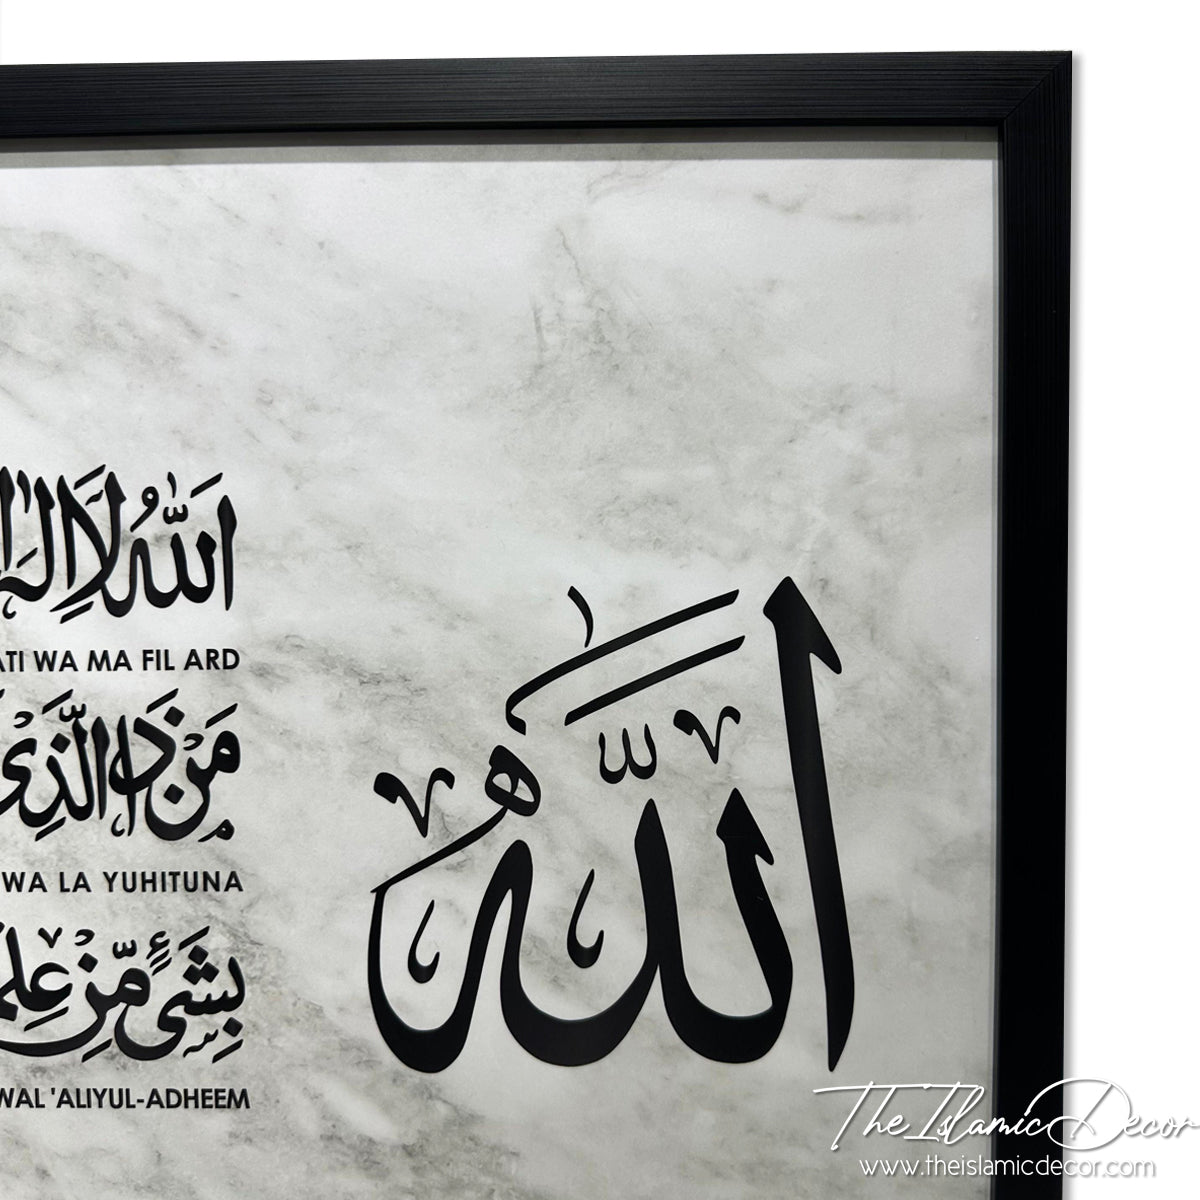 اَللّٰهُ لَا اِلٰهَ
ATI WA MA FIL ARD
مَنْ ذَا الَّذِي
WA LA YUHITUNA
بِشَيْءٍ مِّنْ عِلْمِ
WAL 'ALIYUL-ADHEEM
اللّٰه
The Islamic Decor
www.theislamicdecor.com